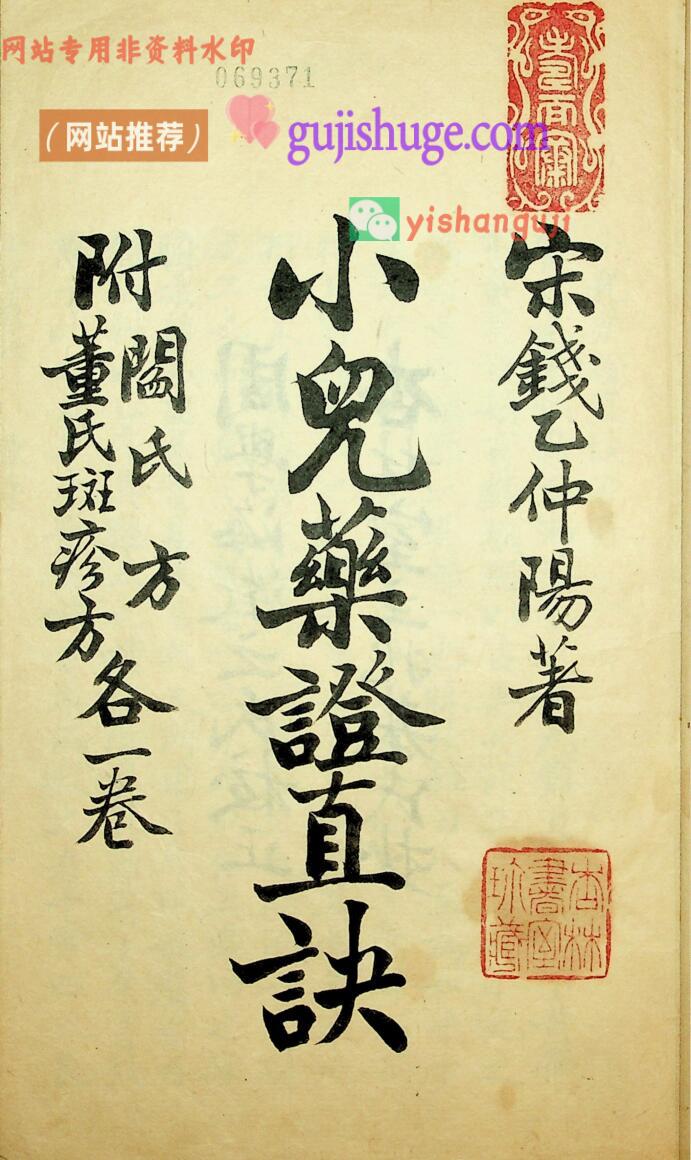 网站专用非资料水印
069371
（网站推荐）
gujishuge.com
yishanguji
宋錢乙仲陽著
小兒藥證直訣
附
閻氏方
董氏斑疹方
各一卷
杏林
書室
珍藏